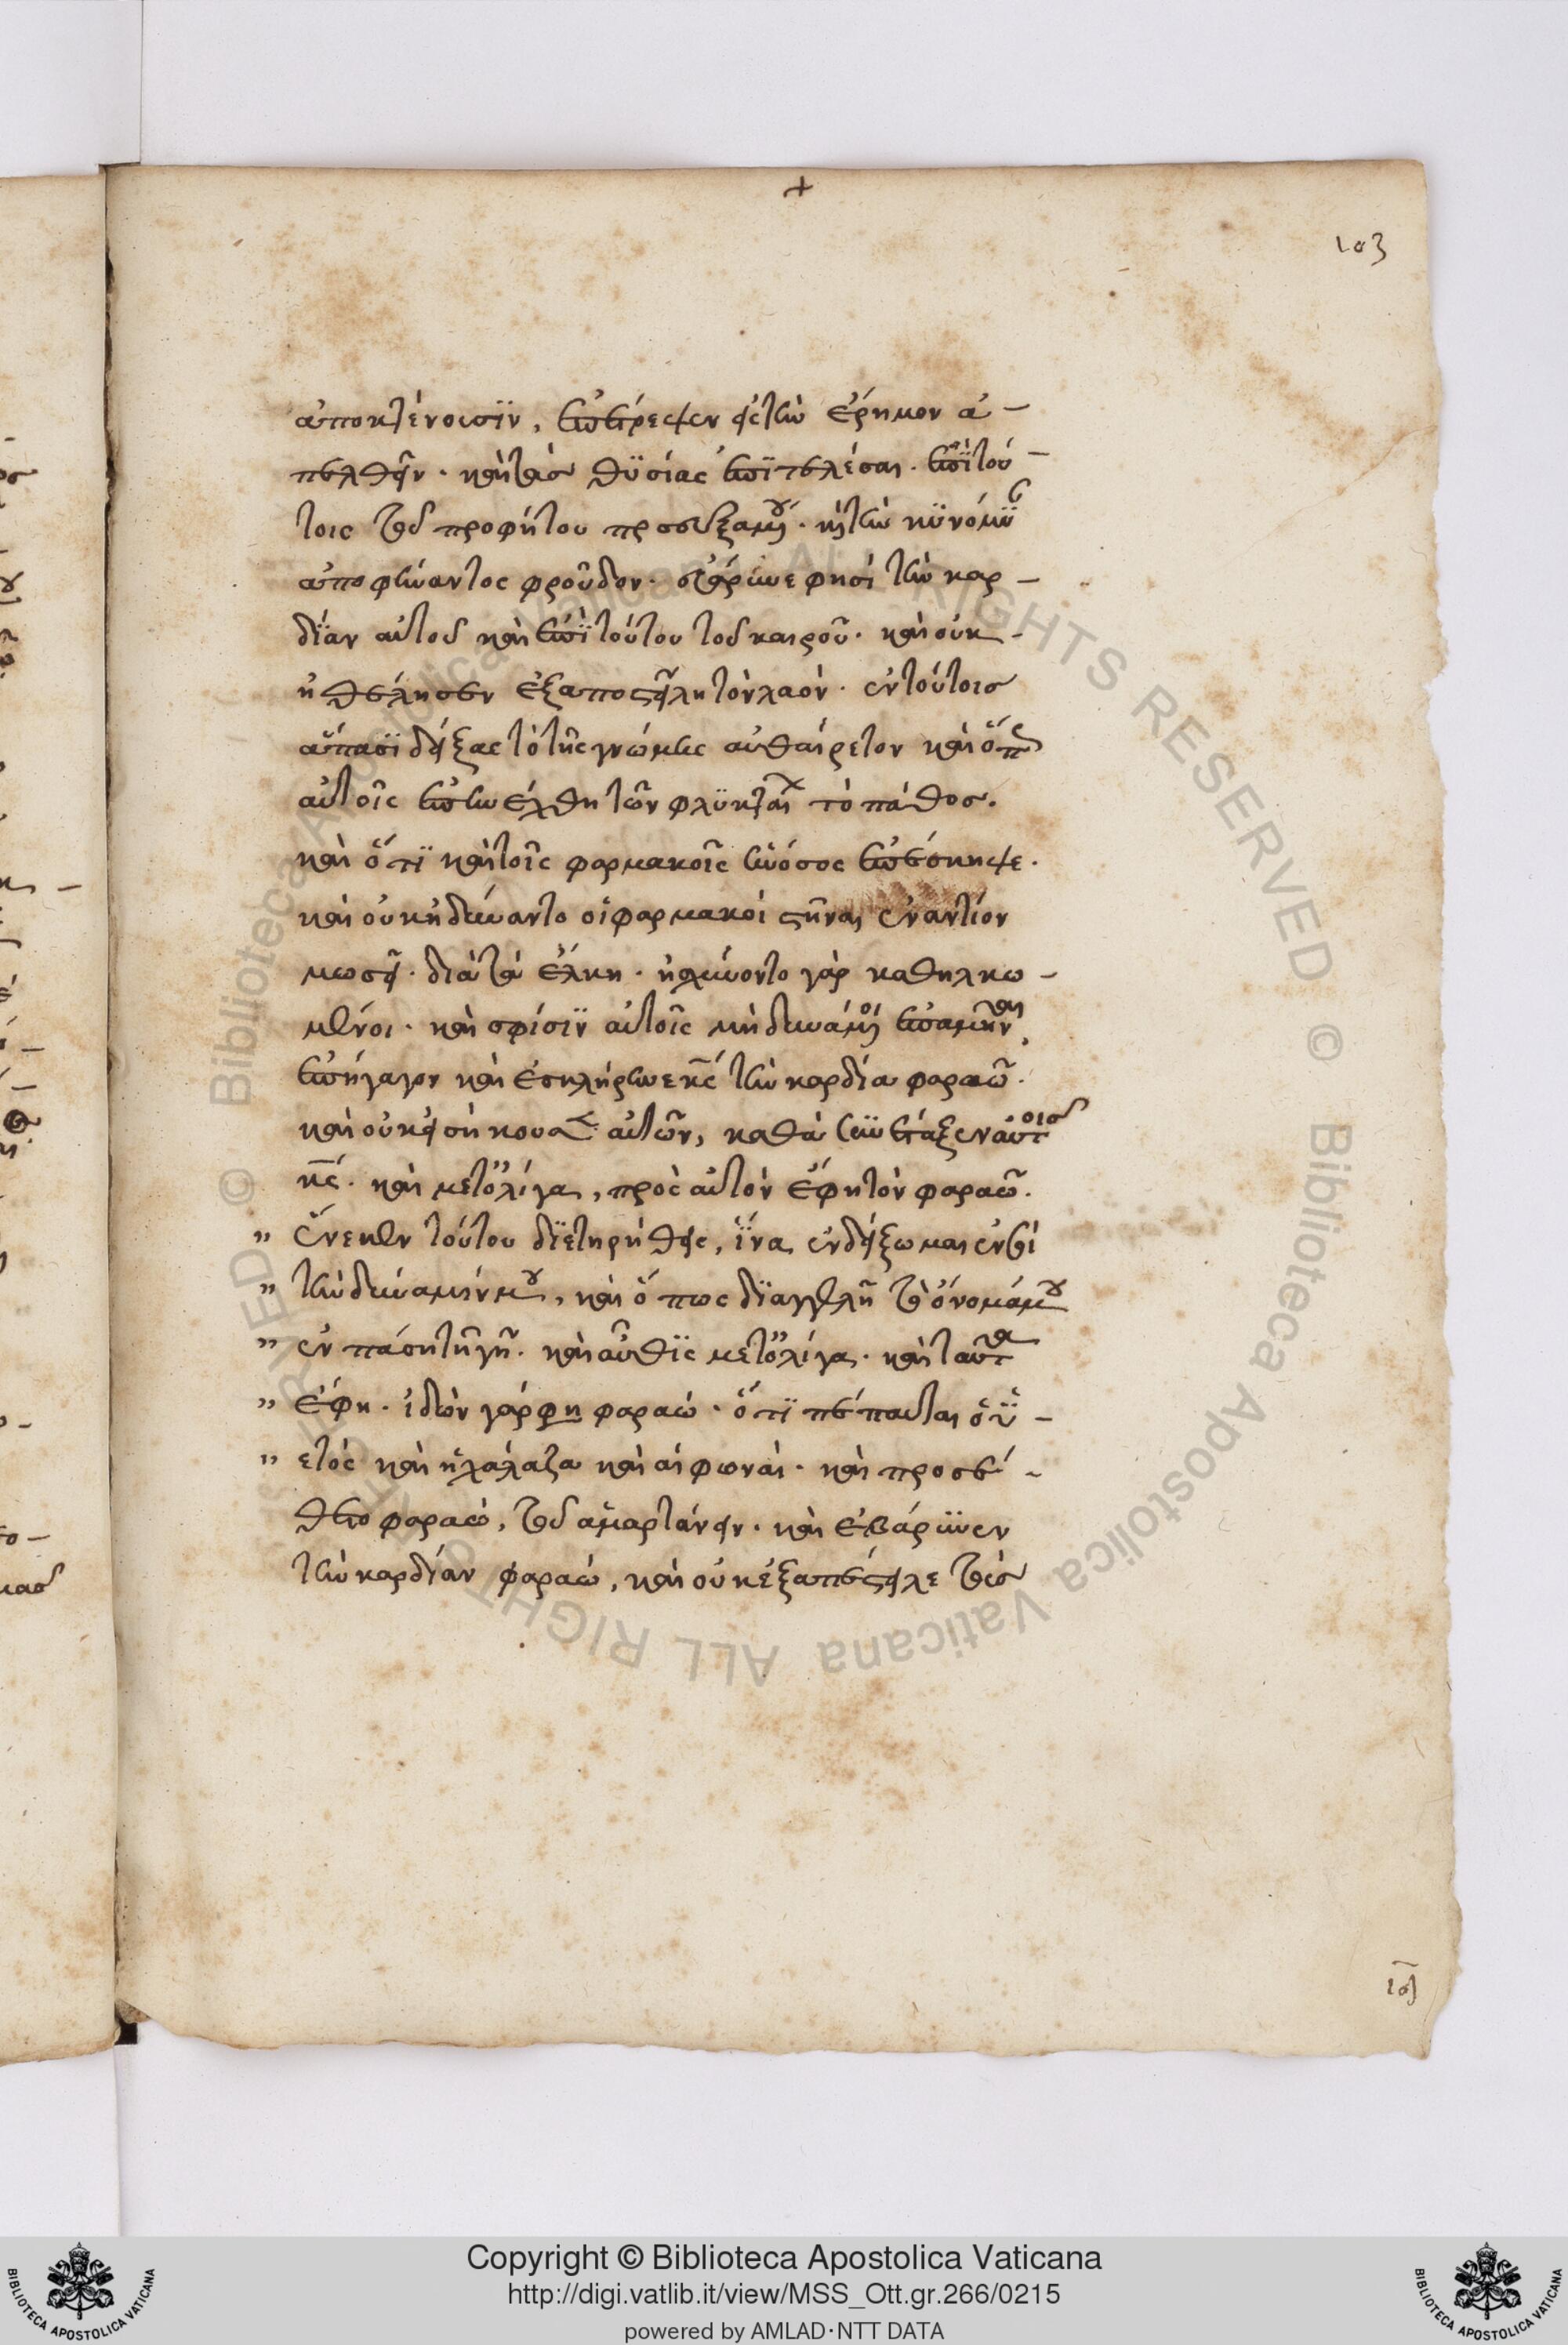 +
103
ἀποκτένουσϊν, ἐπέτρεψεν εἰς τὴν ἔρημον ἀ-
πελθεῖν. καὶ τὰς θϋσίας ἐπϊτελέσαι. ἐπϊ τού-
τοις τοῦ προφήτου προσευξαμένου. καὶ τὴν κϋνόμϋιαν
ἀποφήναντος φροῦδον. ἐβάρυνε φησὶ τὴν καρ-
δϊαν αὐτοῦ καὶ ἐπϊ τούτου τοῦ καιροῦ. καὶ οὐκ-
ἠθέλησεν ἐξαποστεῖλαι τὸν λαόν. ἐν τούτοις
ἅπασϊ δείξας τὸ τῆς γνώμης αὐθαίρετον καὶ ὅπως
αὐτοῖς ἐπηνέχθη τῶν φλϋκταινῶν τὸ πάθος.
καὶ ὅτϊ καὶ τοῖς φαρμακοῖς ἡ νόσος ἐπέσκηψε.
καὶ οὐκ ἠδύναντο οἱ φαρμακοὶ στῆναι ἐναντίον
μωσῆ. διὰ τὰ ἕλκη. ᾐσχύνοντο γὰρ καθηλκω-
μένοι. καὶ σφίσϊν αὐτοῖς μὴ δυνάμενοι ἐπαμῦναι,
ἐπήγαγον καὶ ἐσκλήρυνε κς τὴν καρδία φαραῶ.
καὶ οὐκ εἰσήκουσεν αὐτῶν, καθὰ συνέταξεν αὐτοῖς
κς. καὶ μετ' ὀλίγα, πρὸς αὐτὸν ἔφη τὸν φαραῶ.
" ἕνεκεν τούτου δϊετηρήθης, ἵνα ἐνδείξωμαι ἐν σοὶ
" τὴν δύναμίν μου, καὶ ὅπως δϊαγγελῆ τὸ ὄνομά μου
" ἐν πάση τῆ γῆ. καὶ αὖθϊς μετ' ὀλίγα. καὶ ταῦτα
" ἔφη. ἰδὼν γάρ φη φαραώ. ὅτϊ πέπαυται ὁ ϋ-
" ετὸς καὶ ἡ χάλαζα καὶ αἱ φωναί. καὶ προσέ-
θετο φαραώ, τοῦ ἁμαρτάνειν. καὶ ἐβάρϋνεν
τὴν καρδίαν φαραώ, καὶ οὐκ ἐξαπέστειλε τοὺς
Copyright © Biblioteca Apostolica Vaticana
http://digi.vatlib.it/view/MSS_Ott.gr.266/0215
powered by AMLAD·NTT DATA